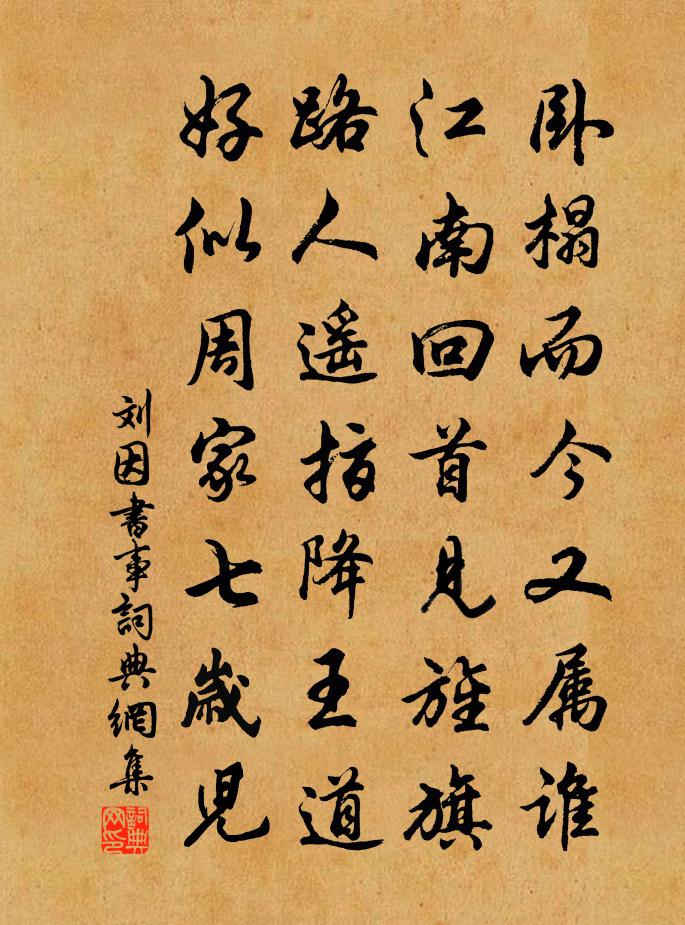 卧榻而今又属谁
江南回首见旌旗
路人遥指降王道
好似周家七歳児
刘因書事詞典網集
詞典网印